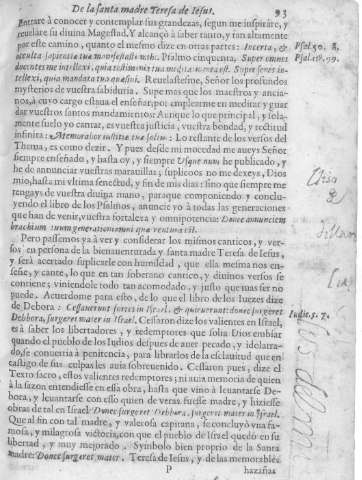 De la santa madre Teresa de Iesus. 93
Entrarè à conocer y contemplar sus grandezas, segun me inspiràre, y
reuelàre su diuina Magestad. Y alcançò à saber tanto, y tan altamente
por este camino, quanto el mesmo dize en otras partes: Incerta, & Psal. 50. 8.
occulta sapientiæ tuæ manifestasti mihi. Psalmo cinquenta, Super omnes Psal. 118. 99.
docentes me intellexi, quia testimonia tua meditatio mea est. Super senes in-
tellexi, quia mandata tua quæsiui. Reuelasteisme, Señor los profundos
mysterios de vuestra sabiduria. Supe mas que los maestros y ancia-
nos, à cuyo cargo estaua el enseñar, por emplearme en meditar y guar
dar vuestros santos mandamientos: Aunque lo que principal, y so-
lamente suelo yo cantar, es vuestra justicia, vuestra bondad, y rectitud
infinita: Memorabor iustitiæ tuæ solius: Lo restante de los versos del
Thema, es como dezir. Y pues desde mi mocedad me aueys Señor
siempre enseñado, y hasta oy, y siempre Vsque nunc he publicado, y
he de annunciar vuestras marauillas; suplicoos no me dexeys, Dios
mio, hasta mi vltima senectud, y fin de mis dias: sino que siempre me
tengays de vuestra diuina mano, paraque componiendo y conclu-
yendo el libro de los Psalmos, anuncie yo à todas las generaciones
que han de venir, vuestra fortaleza y omnipotencia: Donec annunciem
brachium tuum generationi omni quæ ventura est.
Pero passemos ya à ver y considerar los mismos canticos, y ver-
sos en persona de la bienauenturada y santa madre Teresa de Iesus,
y serà acertado suplicarle con humildad, que ella mesma nos en-
señe, y cante, lo que en tan soberano cantico, y diuinos versos se
contiene; viniendole todo tan acomodado, y justo que mas ser no
puede. Acuerdome para esto, de lo que el libro de los Iuezes dize
de Debora: Cessauerunt fortes in Israel, & quieuerunt: donec surgeret Iudic. 5. 7.
Debbora, surgeret mater in Israel. Cessaron dize los valientes en Israel,
es à saber los libertadores, y redemptores que solia Dios embiar
quando el pueblo de los Iudios despues de auer pecado, y idolatra-
do, se conuertia à penitencia, para librarlos de la esclauitud que en
castigo de sus culpas les auia sobreuenido. Cessaron pues, dize el
Texto sacro, estos valientes redemptores; ni auia memoria de quien
à la sazon entendiesse en esta obra, hasta que vino à leuantarse De-
bora, y leuantarse con ello quien de veras fuesse madre, y hiziesse
obras de tal en Israel: Donec surgeret Debbora, surgeret mater in Israel.
Que al fin con tal madre, y valerosa capitana, se concluyò vna fa-
mosa, y milagrosa victoria, con que el pueblo de Israel quedò en su
libertad, y muy mejorado. Symbolo bien proprio de la Santa
madre: Donec surgeret mater. Teresa de Iesus, y de las memorables
P hazañas